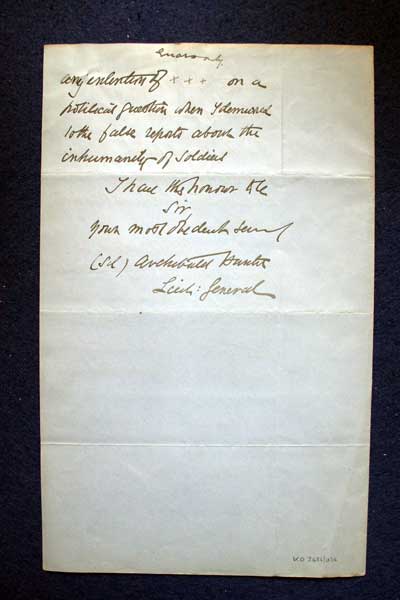 any intention of x x x on a
political question when I demurred
to the false reports about the
inhumanity of Soldiers
I have the honour to be
Sir
your most obedient Serv
(Sd) Archibald Hunter
Lieut: General